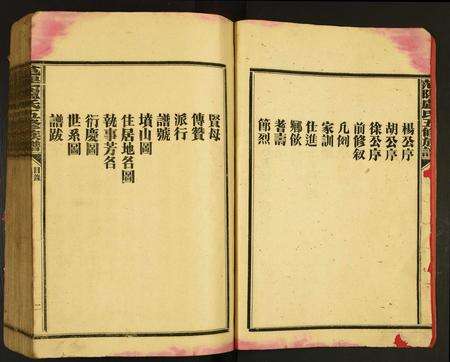 楊公序
胡公序
徐公序
前修叙
凡例
家訓
仕進
耆壽
節烈
賢母
傳贊
派行
譜號
墳山圖
住居地名圖
執事芳名
衍慶圖
世系圖
譜跋
目錄